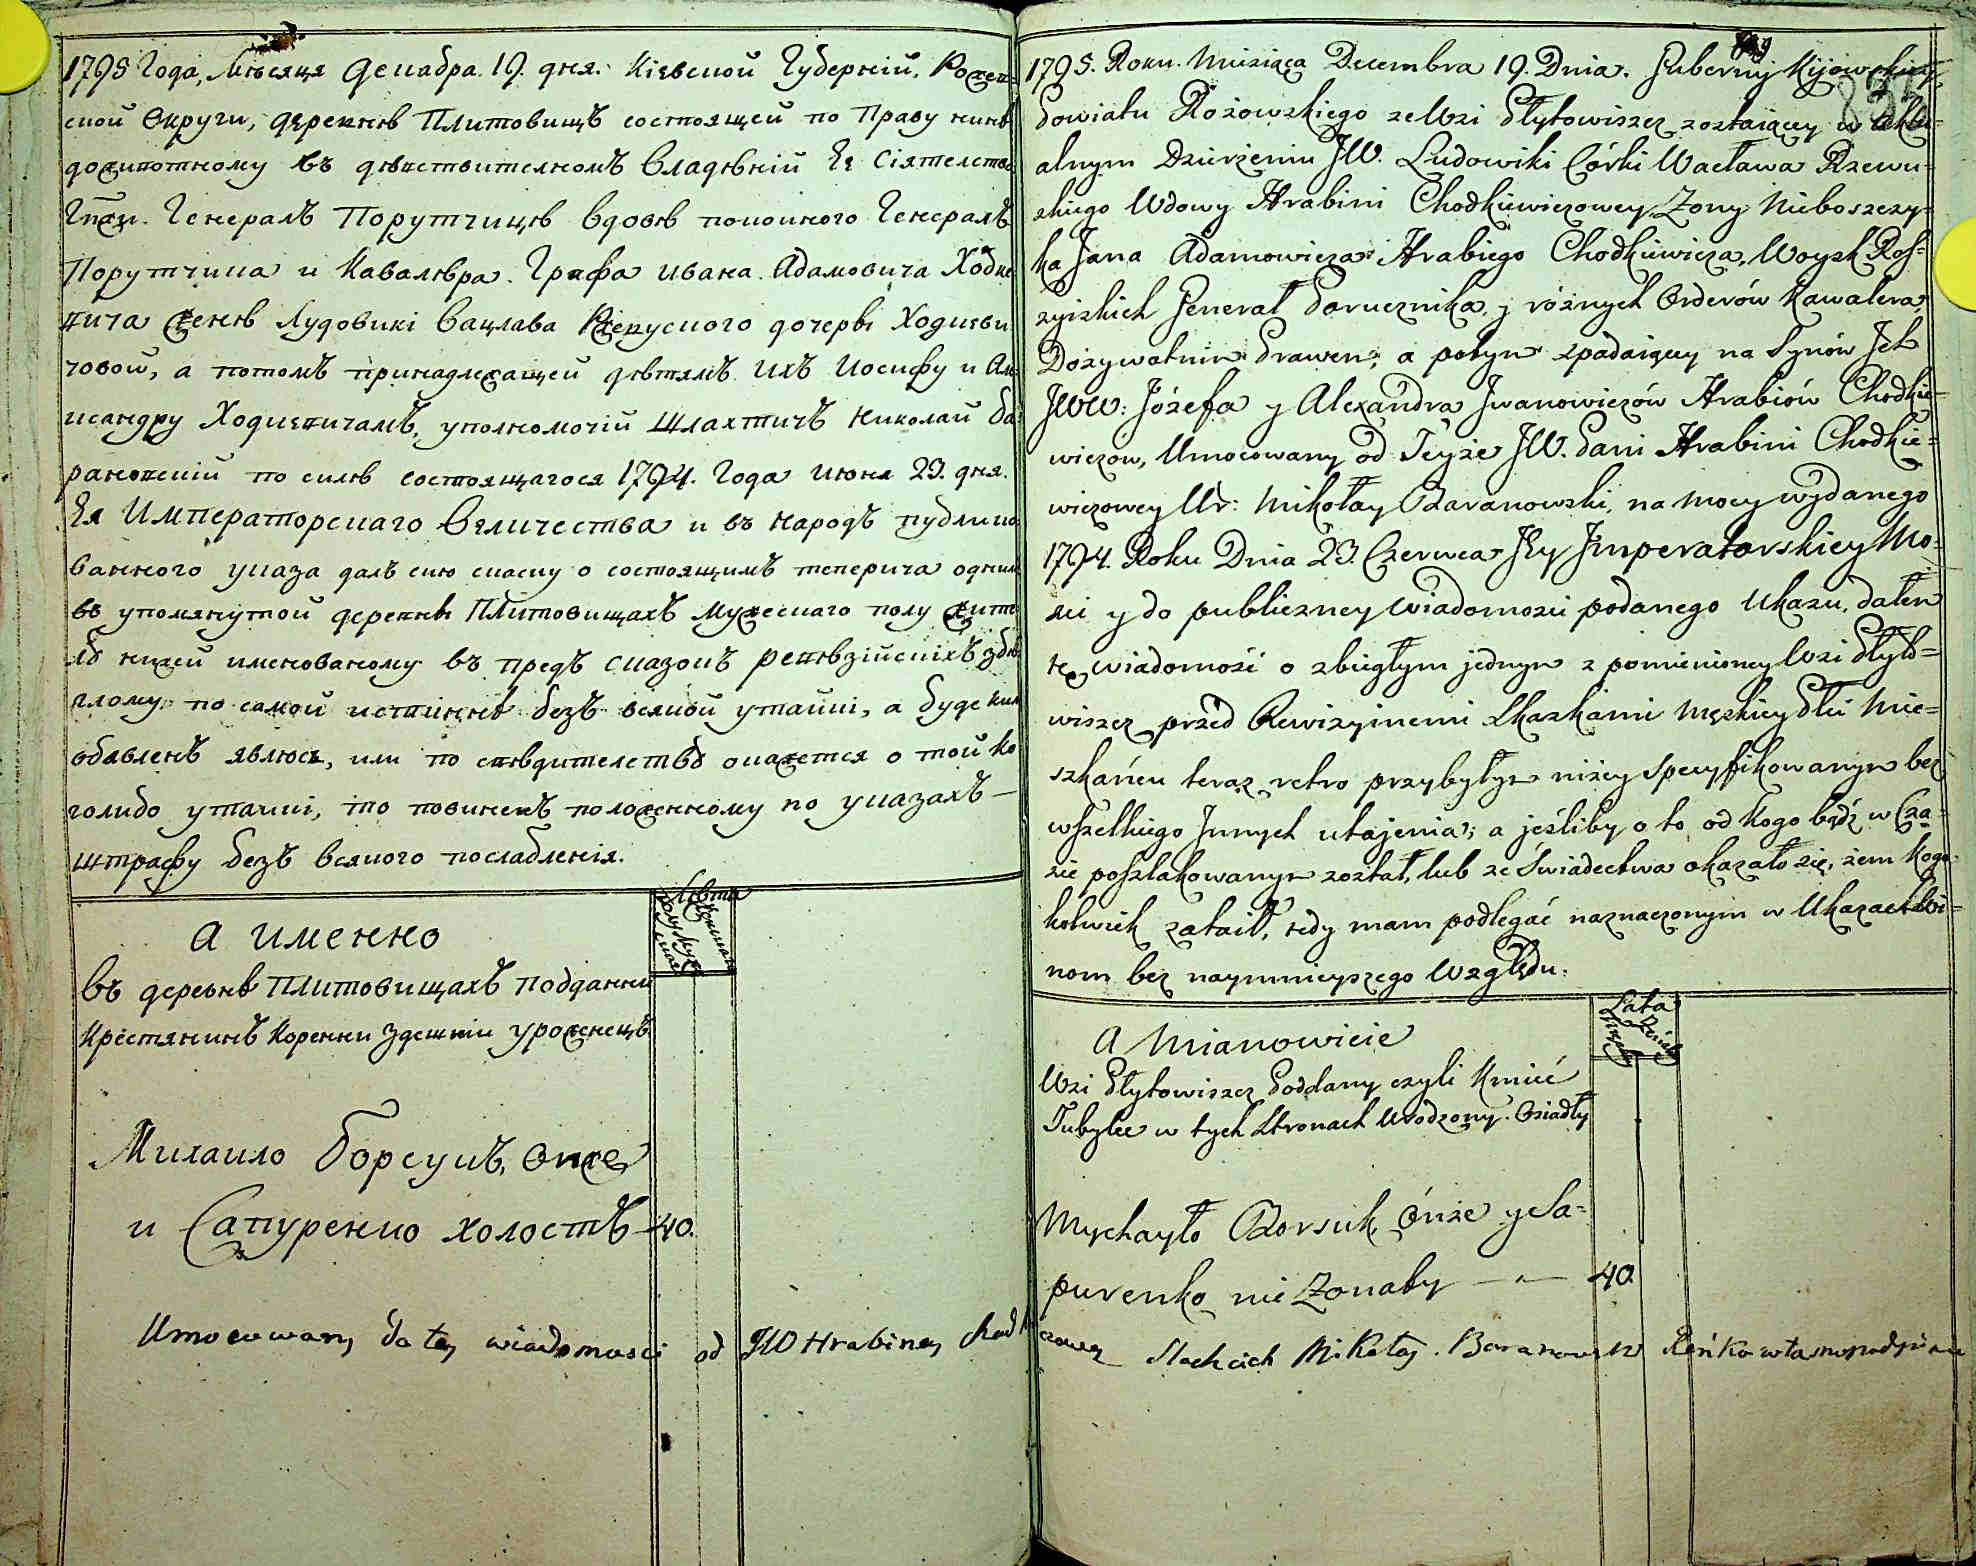 1795 Года, Мѣсяца Декабра. 19. дня. Кіевской Губерніи, Рожев-
ской Округи, деревнѣ Плитовищъ состоящей по Праву нинѣ
дожиvотному въ дѣвствителномъ Владѣніи Ея Сіятелства
Гпжи. Генералъ Порутчицѣ вдовѣ покоиного Генералъ
Порутчика и Кавалѣра. Графа Ивана Адамовича Ходке
вича женѣ Лудовикі Вацлава Ржевуского дочерѣ Ходкеви
човой, а потомъ принадлежащей дѣтямъ ихъ Иосифу и Але
ксандру Ходкевичамъ, уполномочій Шляхтичъ Николай Ба
рановскій по силѣ состоящагося 1794. Года Июня 23. дня.
Ея Императорскаго Величества и въ народъ публико
ванного указа далъ сию скаску о состоящимъ теперича одним
въ упомянутой деревнѣ Плитовищахъ мужескаго полу жите
лѣ нижей именованому въ предъ сказокъ ревѣзійскіхъ збѣ
глому по самой истиннѣ безъ всякой утайкі, а буде ким
обавленъ явлюсь, или по свѣдителству окажется о той ко
голибо утайкі, то повиненъ положенному по указахъ —
штрафу безъ всякого послабленія.
Лѣта
А именно
въ деревнѣ Плитовищахъ подданни
Крестянинъ коренни здешніи уроженецъ
Михаило Борсукъ, онже
и Сапуренко холостъ 40.
1795. Roku. Miesiąca Decembra 19. Dnia. Gubernij Kijowskiey,
Powiatu Rożowskiego ze Wsi Płytowiszcz zostaiącey w aktu-
alnym Dzierżeniu JW. Ludowiki Córki Wacława Rzewu-
skiego Wdowy Hrabini Chodkiewiczowey, Zony Nieboszczy-
ka Jana Adamowicza Hrabiego Chodkiewicza, Woysk Ros-
syiskich Generał Porucznika, y różnych Orderów Kawalera,
Dożywotnim Prawem, a potym spadaiącey na Synów Jch
JWW: Józefa y Alexandra Jwanowiczów Hrabiów Chodkie-
wiczow, Umocowany od Teyże JW. Pani Hrabini Chodkie-
wiczowey Ur: Mikołay Baranowski, na mocy wydanego
1794. Roku Dnia 23. Czerwca Jey Jmperatorskiey Mo-
sci y do publiczney wiadomosci podanego Ukazu, dałem
tę wiadomość o zbiegłym jednym z pomienioney Wsi Płyto-
wiszcz przed Rewizyinemi Skaskami męzkiey Płci Mie-
szkańcu teraz retro przybyłym niżey Specyfikowanym bez
wszelkiego Jnnych utajenia; a jeśliby o to od kogo bądź w Cza-
sie poszlakowanym został, lub ze Świadectwa okazało się, żem kogo-
kolwiek zataił, tedy mam podlegać naznaczonym w Ukazach Wi-
nom bez naymnieyszego Względu.
Lata
A Mianowicie
Wsi Płytowiszcz Poddany czyli Kmieć
Tubylec w tych Stronach Urodzony. Osiadły
Mychayło Borsuk, Ónże y Sa-
purenko nie Zonaty — „ — 40.
Umocowany do tey wiadomosci od JW Hrabiney Chodkiczowey Slachcich Mikołay Baranowski Ręńką własną podpisuię